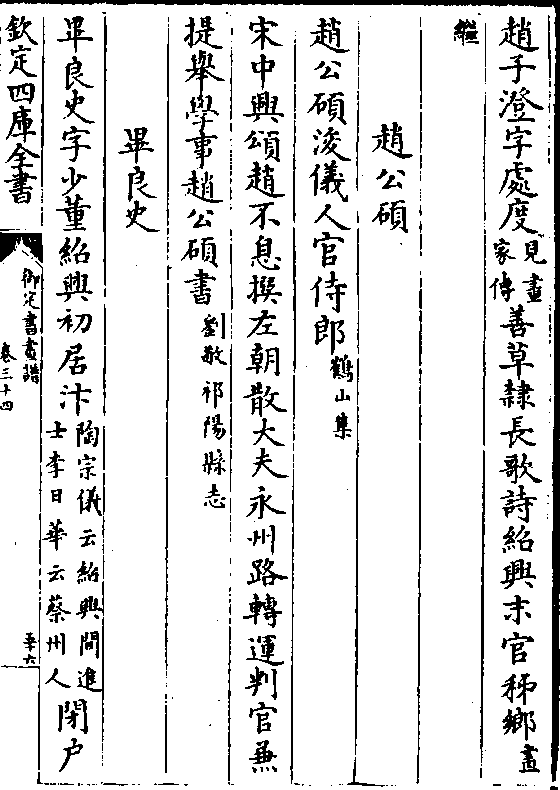 趙子澄字處度見畫家傳善草隸長歌詩紹興末官秭鄉畫
繼
趙公碩
趙公碩浚儀人官侍郎鶴山集
宋中興頌趙不息撰左朝散大夫永州路轉運判官兼
提舉學事趙公碩書劉敏祁陽縣志
畢良史
畢良史字少董紹興初居汴陶宗儀云紹興間進士李日華云蔡州人閉户
欽定四庫全書
御定書畫譜
卷三十四